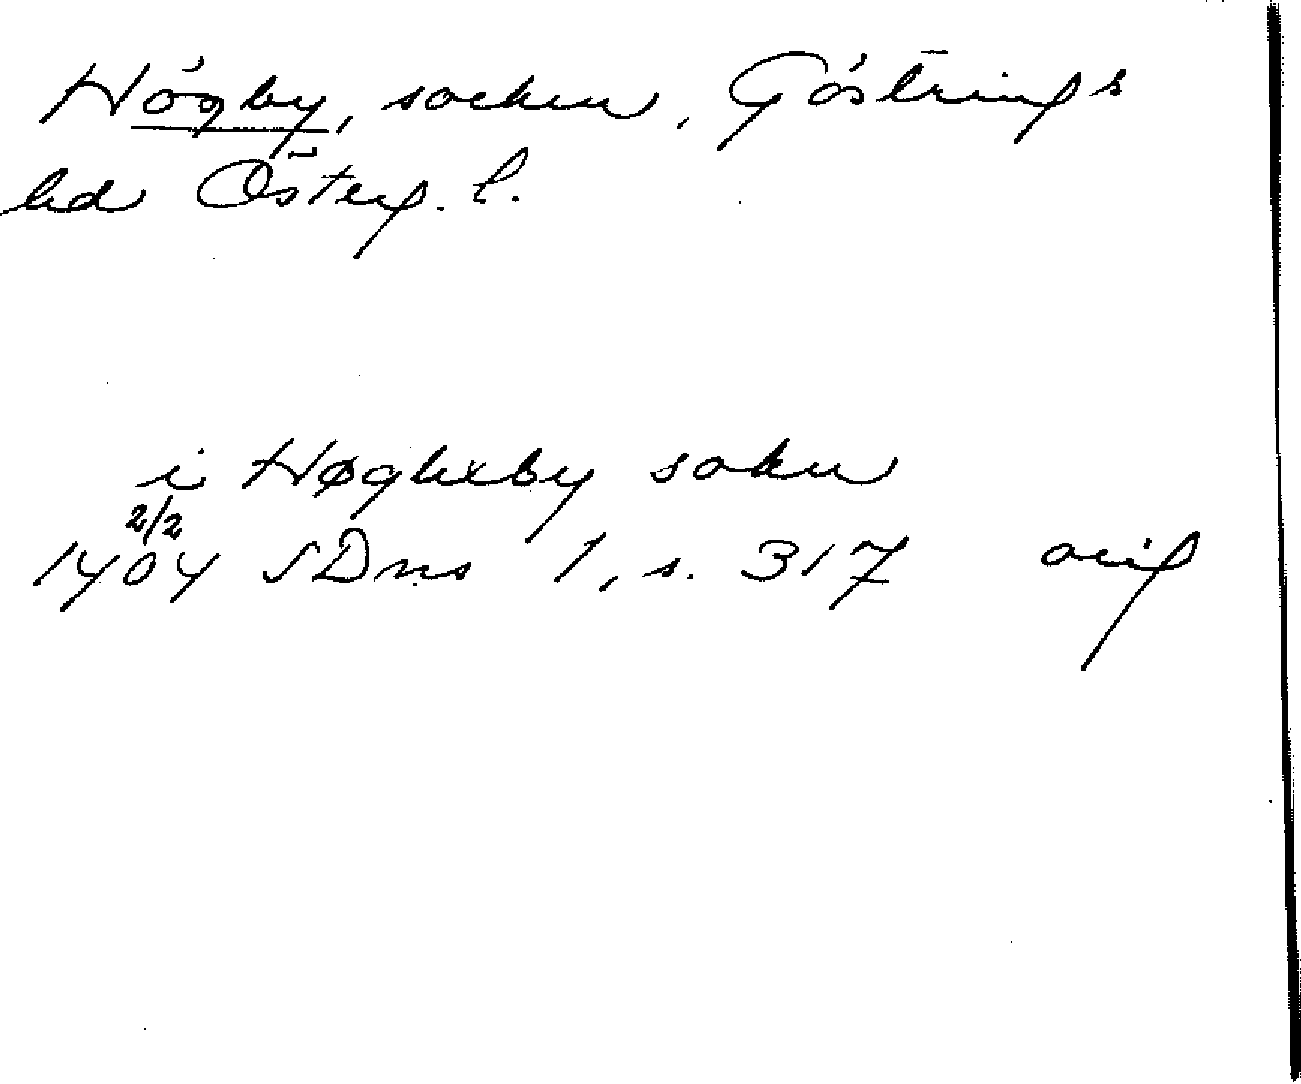 Högby, socken, Göstrings
hd Österg. l.
i Høghxby sokn
2/2
1404 SDns 1, s. 317 orig